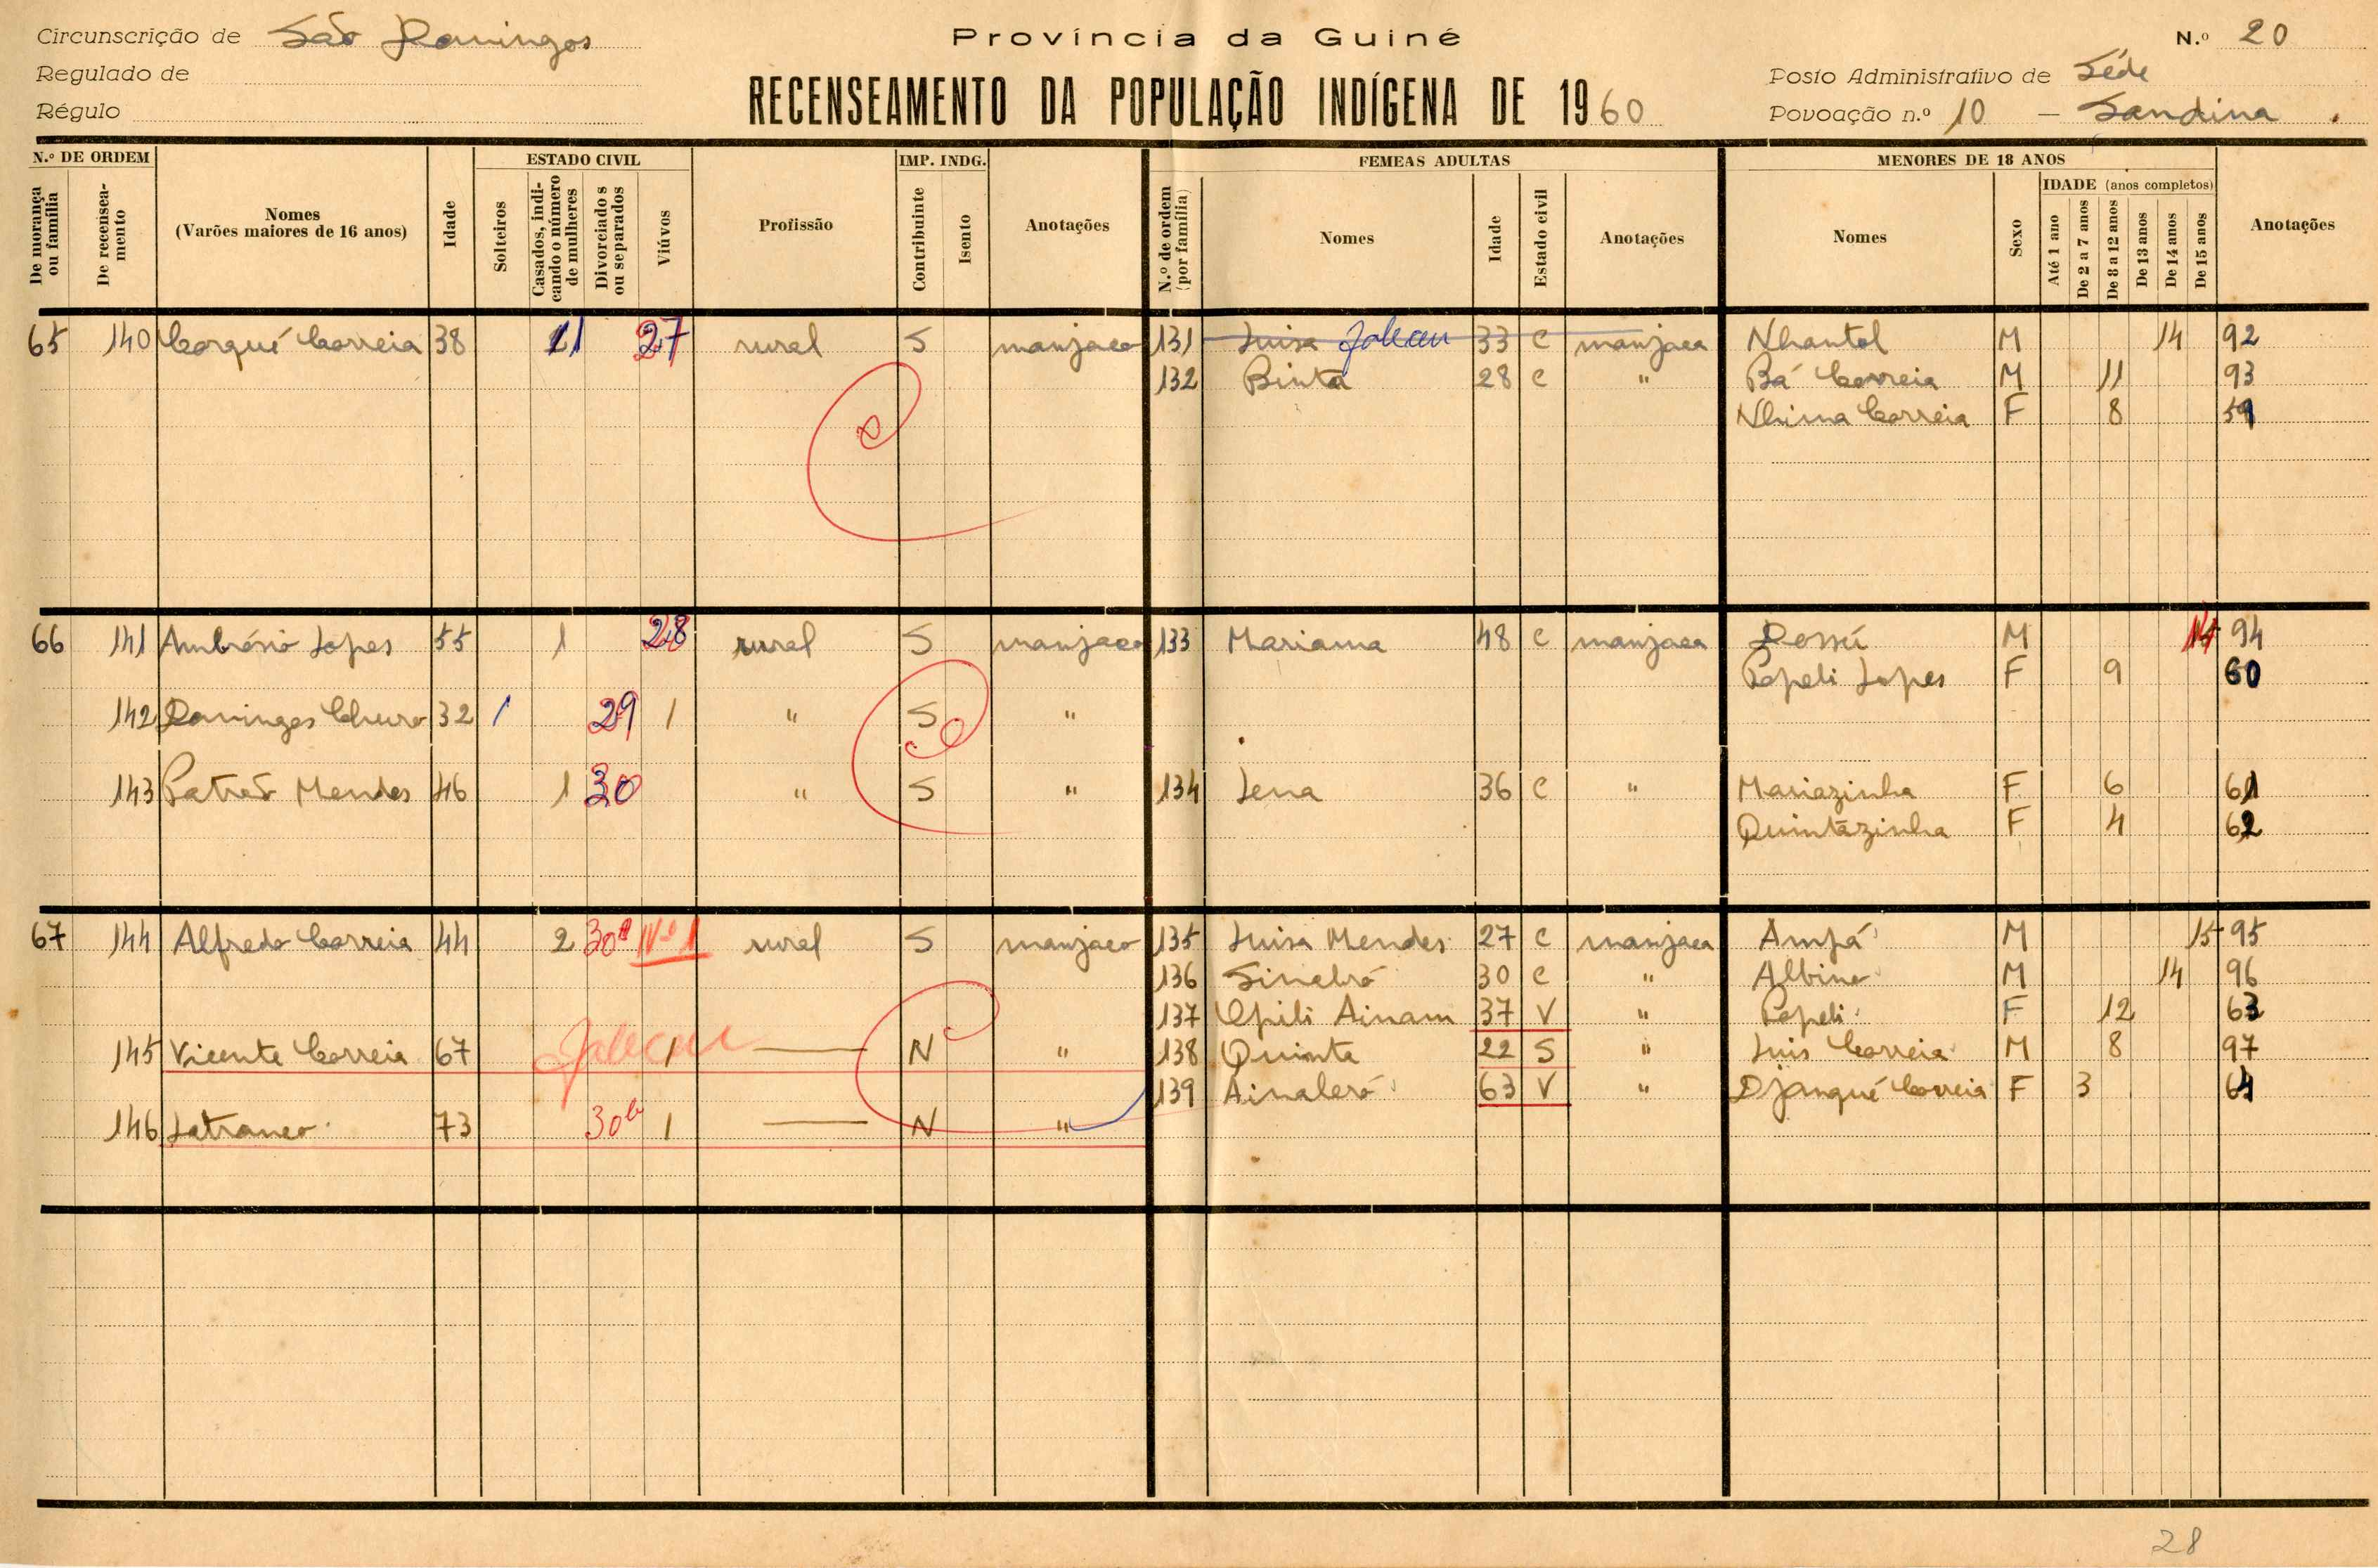 Circunscrição de São Domingos
Província da Guiné
N.º 20
Regulado de
Régulo
RECENSEAMENTO DA POPULAÇÃO INDÍGENA DE 1960
Posto Administrativo de Séde
Povoação n.º 10 – Sandina .
N.º DE ORDEM
De morança ou família
De recenseamento
Nomes
(Varões maiores de 16 anos)
Idade
ESTADO CIVIL
Solteiros
Casados, indicando o número de mulheres
Divorciados ou separados
Viúvos
Profissão
IMP. INDG.
Contribuinte
Isento
Anotações
FEMEAS ADULTAS
N.º de ordem (por família)
Nomes
Idade
Estado civil
Anotações
MENORES DE 18 ANOS
Nomes
Sexo
IDADE (anos completos)
Até 1 ano
De 2 a 7 anos
De 8 a 12 anos
De 13 anos
De 14 anos
De 15 anos
Anotações
65 140 Corqué Correia 38 27 rural S manjaco 131 Luisa Faleceu 33 C manjaca Nhantol M 14 92
132 Binta 28 C " Bá Correia M 11 93
Nhima Correia F 8 59
66 141 Ambrósio Lopes 55 1 28 rural S manjaco 133 Mariama 48 C manjaca M 94
Pepeli Lopes F 9 60
142 Domingos 32 1 29 1 " S "
143 Patrão Mendes 46 1 30 " S " 134 Lena 36 C " Mariazinha F 6 61
Quintazinha F 4 62
67 144 Alfredo Correia 44 2 30a Nº 1 rural S manjaco 135 Luisa Mendes 27 C manjaca Ampá M 15 95
136 30 C " Albino M 14 96
137 Upili Ainam 37 V " Pepeli F 12 63
145 Vicente Correia 67 Faleceu 1 — N " 138 Quinta 22 S " Luis Correia M 8 97
139 63 V " Djanqué Correia F 3 64
146 73 30b 1 — N "
28